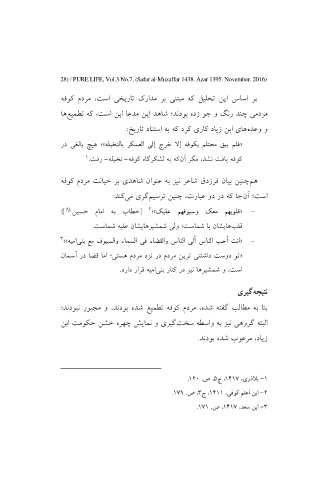 28) / PURE LIFE, Vol.3.No.7, (Safar al-Muzaffar 1438. Azar 1395. November. 2016)
بر اساس این تحلیل که مبتنی بر مدارک تاریخی است، مردم کوفه
مردمی چند رنگ و جو زده بودند؛ شاهد این مدعا این است، که تطمیع‌ها
و وعده‌های ابن زیاد کاری کرد که به استناد تاریخ:
«فلم یبق محتلم بکوفه إلا خرج إلی العسکر بالنخیله»؛ هیچ بالغی در
کوفه یافت نشد، مگر آن‌که به لشکرگاه کوفه- نخیله- رفت.۱
هم‌چنین بیان فرزدق شاعر نیز به عنوان شاهدی بر خیانت مردم کوفه
است؛ آن‌جا که در دو عبارت، چنین ترسیم‌گری می‌کند:
- «قلوبهم معک وسیوفهم علیک»؛۲ [خطاب به امام حسین]:
قلب‌هایشان با شماست؛ ولی شمشیرهایشان علیه شماست.
- «انت أحب الناس ألی الناس والقضاء فی السماء والسیوف مع بنی‌امیه»؛۳
«تو دوست داشتنی ترین مردم در نزد مردم هستی؛ اما قضا در آسمان
است، و شمشیرها نیز در کنار بنی‌امیه قرار دارد.
نتیجه‌گیری
بنا به مطالب گفته شده، مردم کوفه تطمیع شده بودند، و مجبور نبودند؛
البته گروهی نیز به واسطه سخت‌گیری و نمایش چهره خشن حکومت ابن
زیاد، مرعوب شده بودند.
۱- بلاذری، ۱۴۱۷، ج۵، ص. ۱۲۰.
۲- ابن اعثم کوفی، ۱۴۱۱، ج۳، ص. ۱۷۹.
۳- ابن سعد، ۱۴۱۷، ص. ۱۷۱.